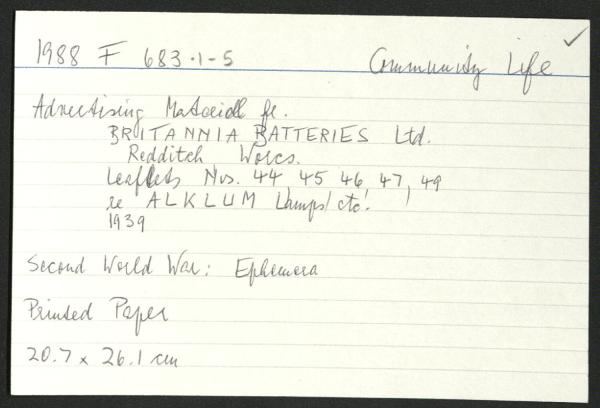 1988 F 683.1-5 Community Life
Advertising Material fr.
BRITANNIA BATTERIES Ltd.
Redditch Worcs.
Leaflets Nos. 44, 45 46, 47, 49
re ALKLUM Lamps etc.
1939
Second World War: Ephemera
Printed Paper
20.7 x 26.1 cm